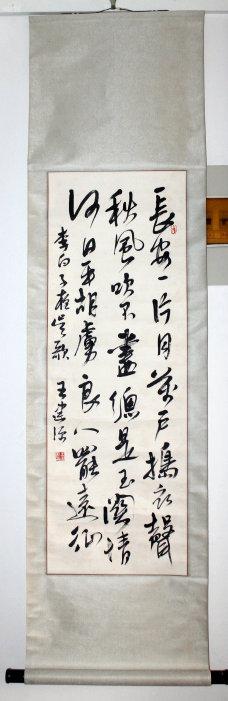 長安一片月萬戶擣衣聲
秋風吹不盡總是玉關情
何日平胡虜良人罷遠征
李白子夜吳歌 王